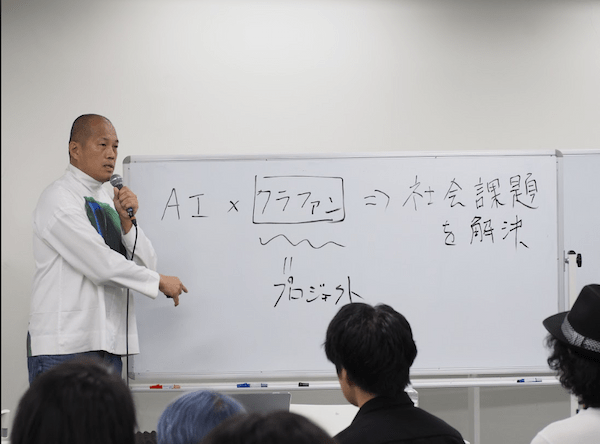 AI × クラファン ⇒ 社会課題
を解決
||
プロジェクト